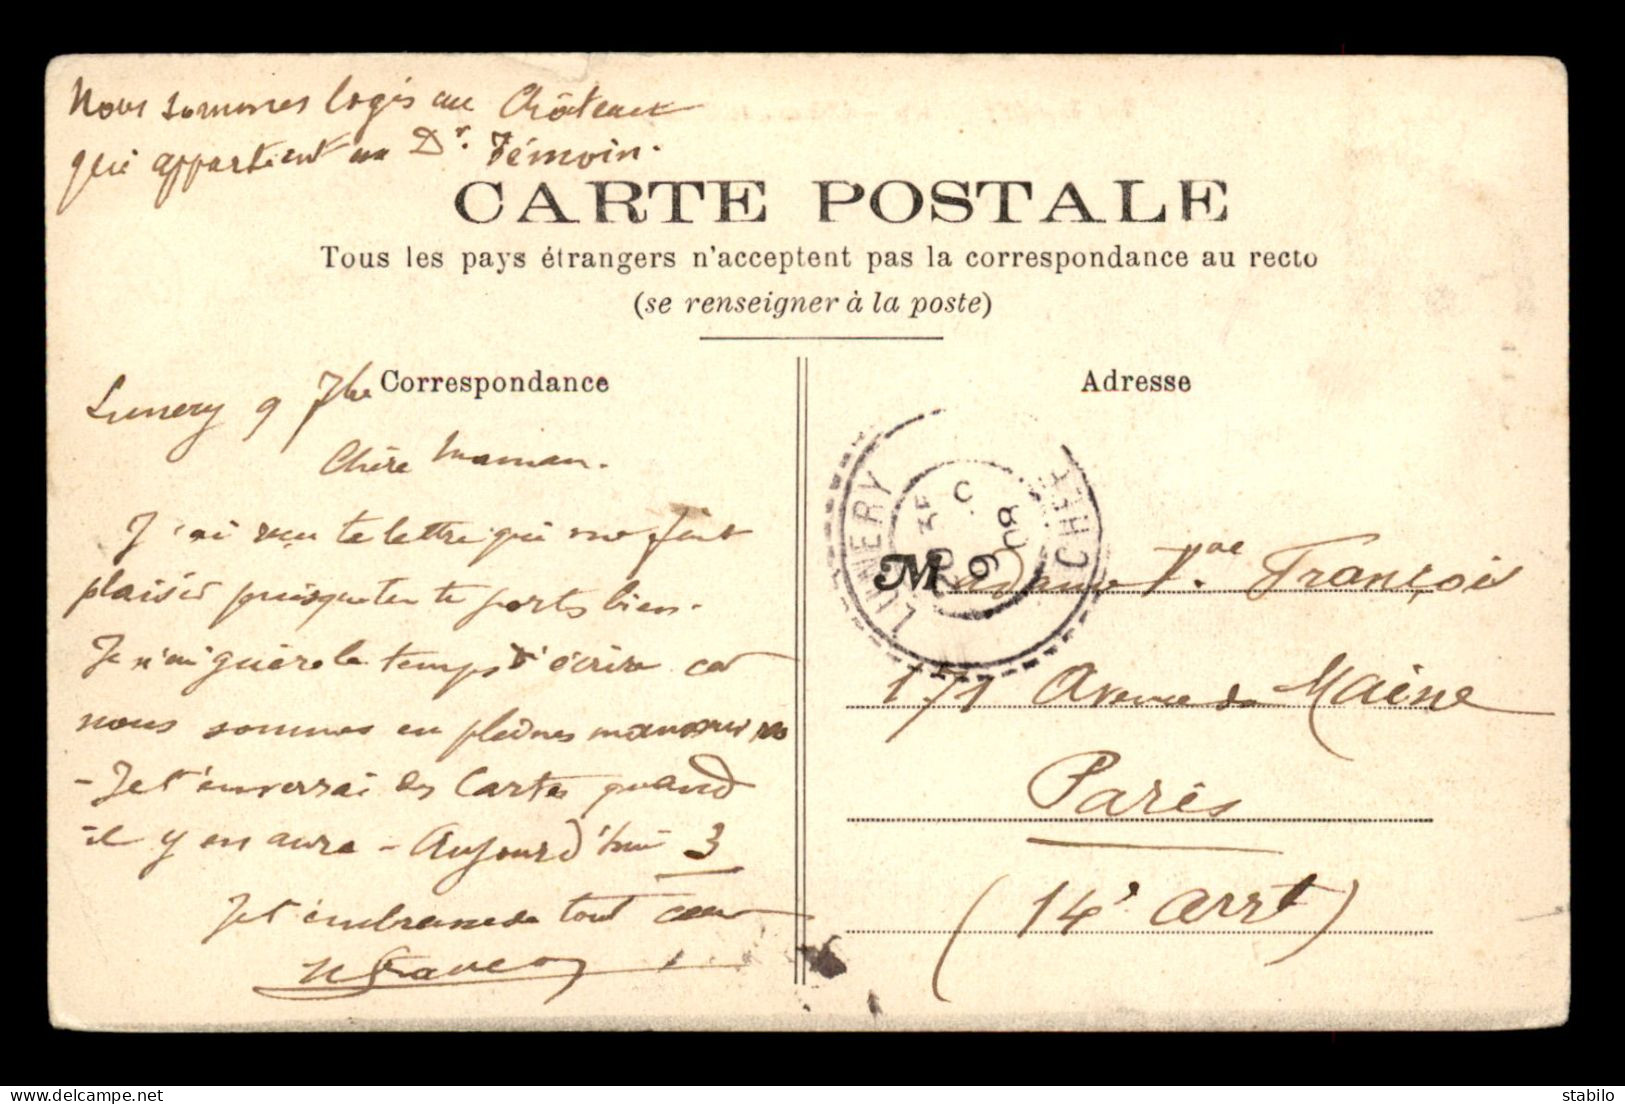 Nous sommes logés au Château
qui appartient au Dr. Témoin.
CARTE POSTALE
Tous les pays étrangers n'acceptent pas la correspondance au recto
(se renseigner à la poste)
Correspondance
Lunery 9 7bre
Chère Maman.
J'ai reçu ta lettre qui me fait
plaisir puisque tu te portes bien.
Je n'ai guère le temps d'écrire car
nous sommes en pleines manoeuvres
- Je t'enverrai des Cartes quand
il y en aura - Aujourd'hui 3
Je t'embrasse de tout coeur
François
Adresse
LUNERY
CHER
9
08
Madame Vve François
171 Avenue du Maine
Paris
(14e arrt)
delcampe.net
stabilo